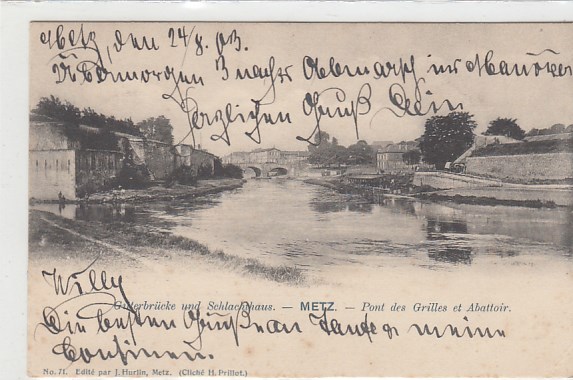 Metz, den 24/8. 03.
Übermorgen 3 nachts Abmarsch ins Manöver
Herzlichen Gruß Dein
Willy
Giterbrücke und Schlachthaus. — METZ. — Pont des Grilles et Abattoir.
Die besten Grüße an Tante & meine
Cousinen.
No. 71. Edité par J. Hurlin, Metz. (Cliché H. Prillot.)